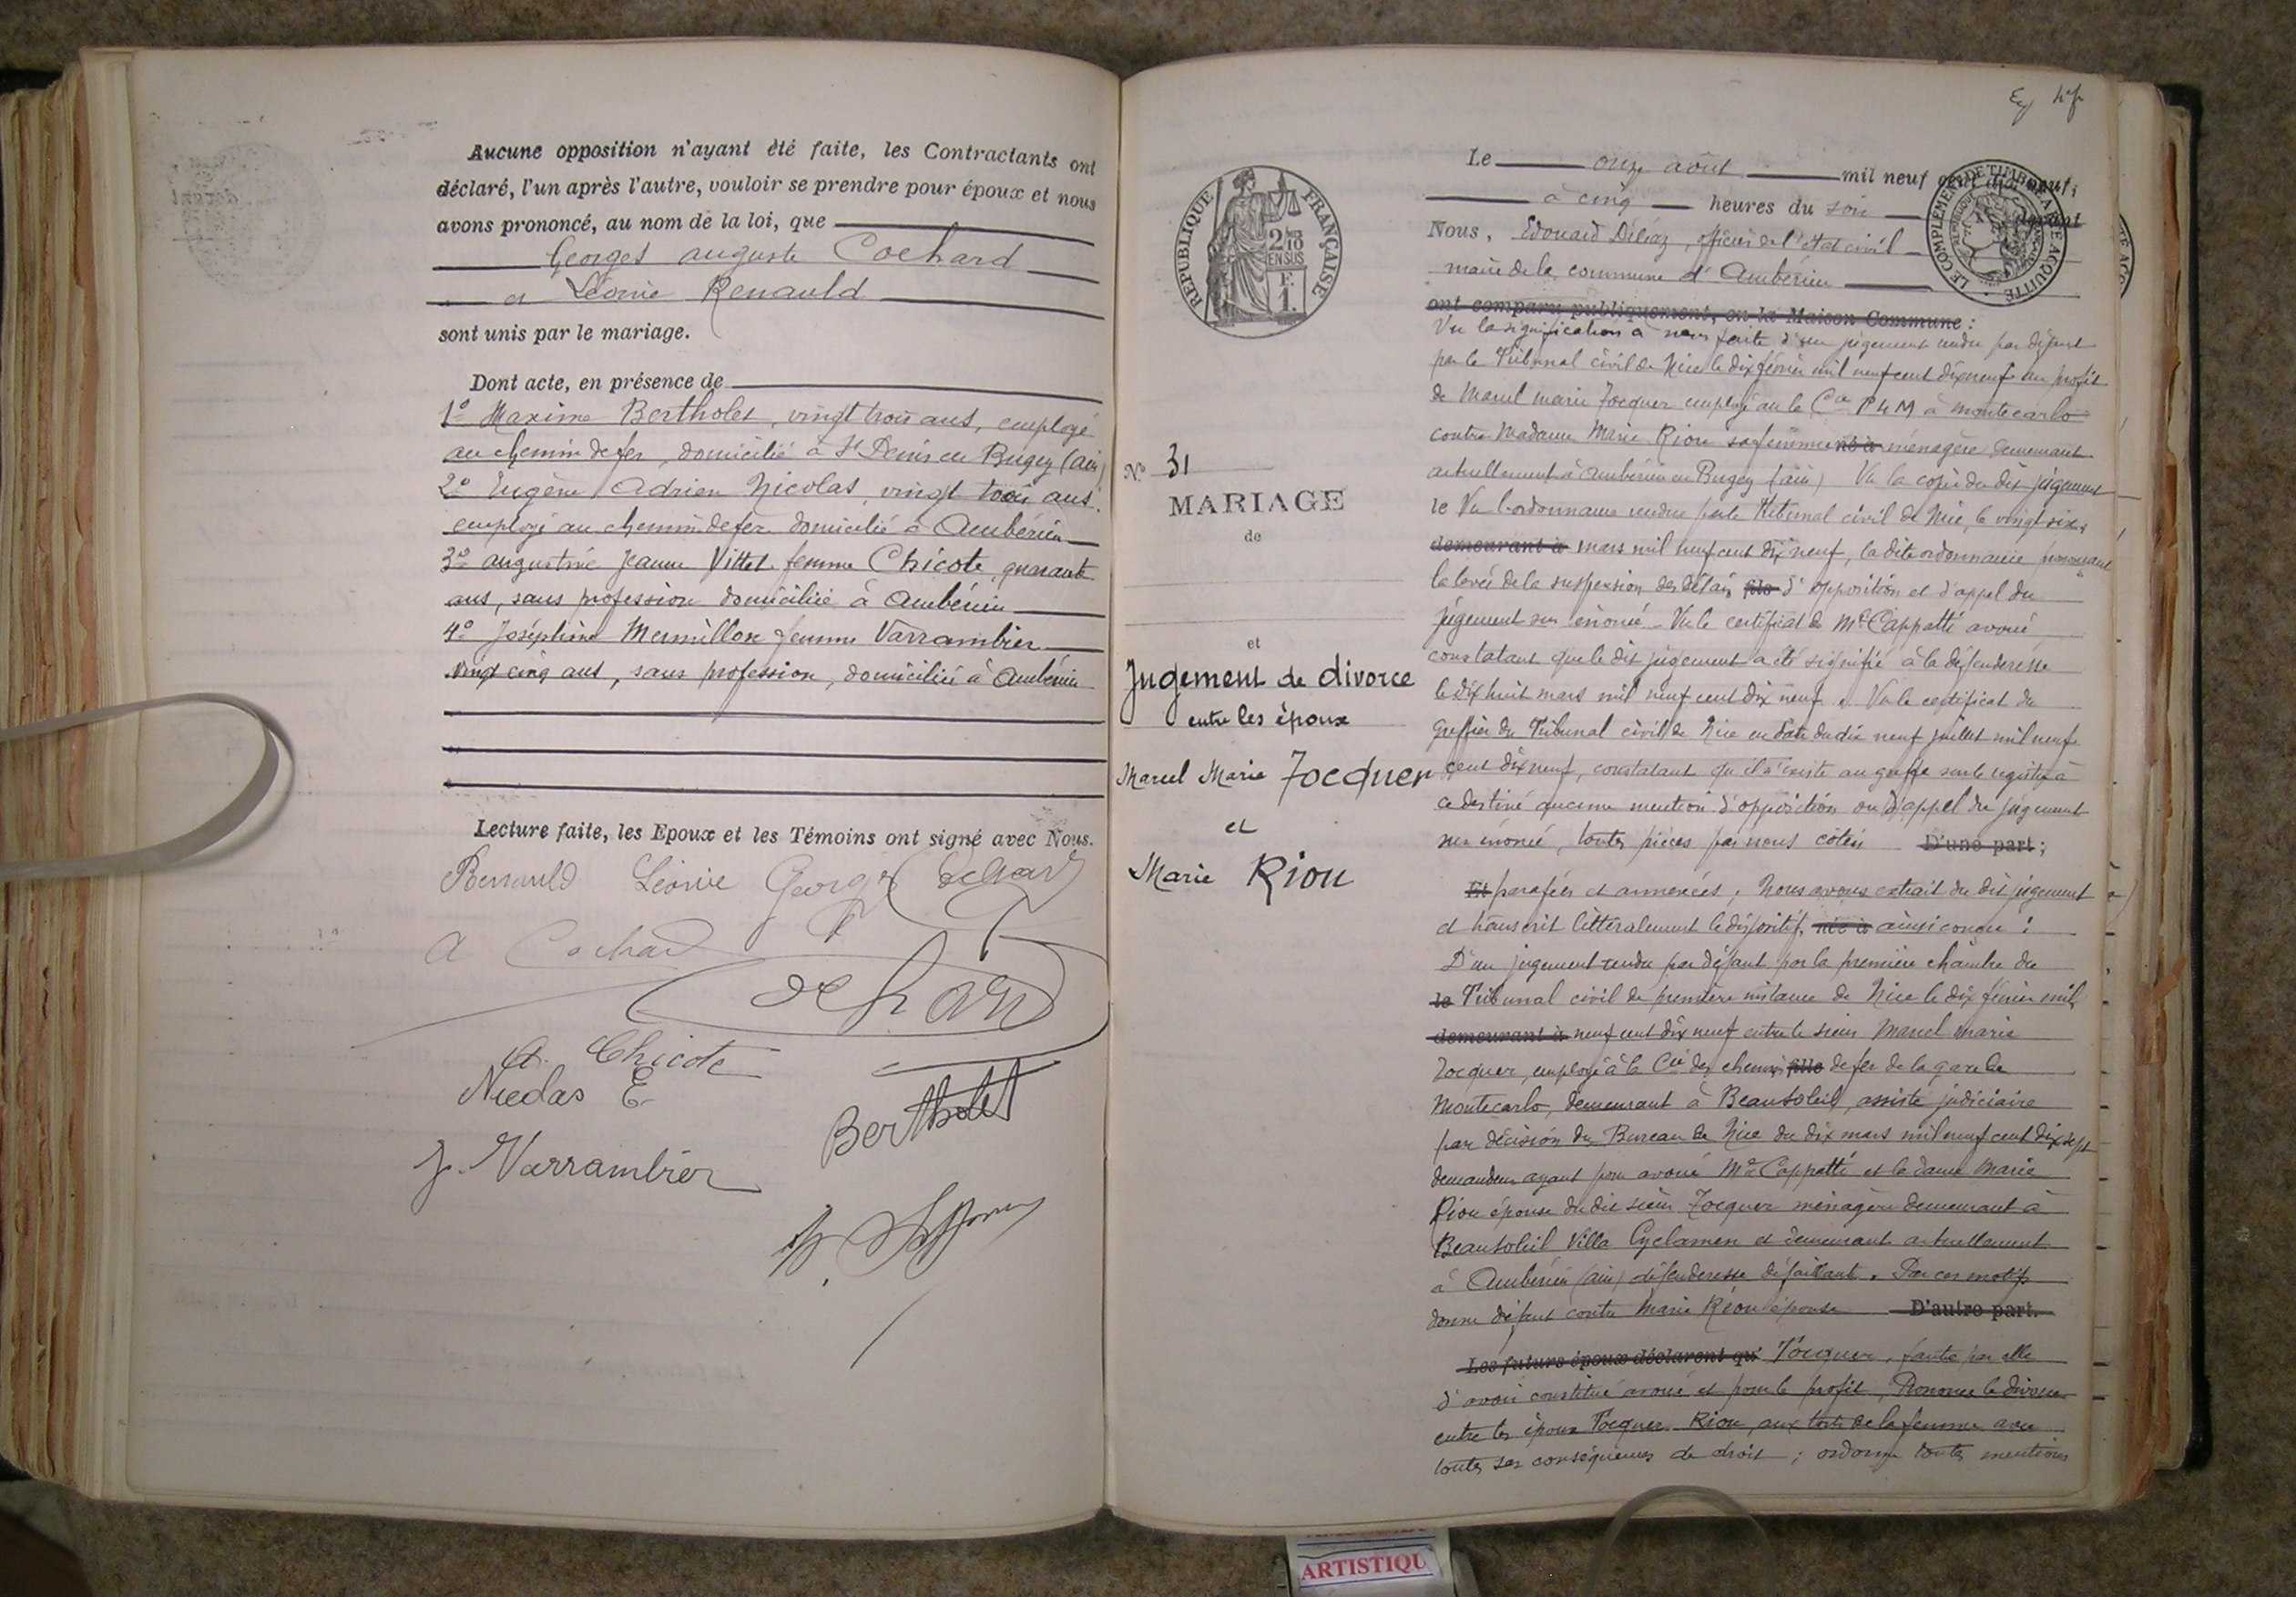 Aucune opposition n'ayant été faite, les Contractants ont
déclaré, l'un après l'autre, vouloir se prendre pour époux et nous
avons prononcé, au nom de la loi, que
Georges auguste Cochard
et Léonie Renauld
sont unis par le mariage.
Dont acte, en présence de
1º Maxime Bertholet, vingt trois ans, employé
au chemin de fer, domicilié à St Denis en Bugey (ain)
2º Eugène Adrien Nicolas, vingt trois ans.
employé au chemin de fer domicilié à Ambérieu
3º augustine Jeanne Vittet femme Chicote, quarante
ans, sans profession domiciliée à Ambérieu
4º Joséphine Mermillon femme Varrambier
vingt cinq ans, sans profession, domiciliée à Ambérieu
Lecture faite, les Epoux et les Témoins ont signé avec Nous.
Renauld Léonie Georges Cochard
A Cochard
Cochard
A. Chicote
Nicolas E.
Bertholet
J. Varrambier
RÉPUBLIQUE FRANÇAISE
2/10 EN SUS
F. 1.
Nº 31
MARIAGE
de
et
Jugement de divorce
entre les époux
Marcel Marie Tocquer
et
Marie Riou
Le onze août mil neuf cent dix neuf,
à cinq heures du soir devant
LE COMPLEMENT DE TIMBRE A ETE ACQUITTE
Nous, Edouard Déliaz, officier de l'état civil
maire de la commune d'Ambérieu
ont comparu publiquement, en la Maison Commune :
Vu la signification à nous faite d'un jugement rendu par défaut
par le Tribunal civil de Nice le dix février mil neuf cent dix neuf au profit
de Marcel marie Tocquer employé au la Cie P L M à montecarlo
contre Madame Marie Riou sa femme né à ménagère demeurant
actuellement à Ambérieu en Bugey (ain) Vu la copie du dit jugement
le Vu l'ordonnance rendue par le Tribunal civil de Nice, le vingt six
demeurant à mars mil neuf cent dix neuf, la dite ordonnance prononçant
la levée de la suspension des délais fils d'opposition et d'appel du
jugement sus énoncé - Vu le certificat de Me Cappatti avoué
constatant que le dit jugement a été signifié à la défenderesse
le dix huit mars mil neuf cent dix neuf. Vu le certificat du
Greffier du Tribunal civil de Nice en date du dix neuf juillet mil neuf
cent dix neuf, constatant qu'il n'existe au greffe sur le registre à
ce destiné aucune mention d'opposition ou d'appel du jugement
sus énoncé, toutes pièces par nous cotées D'une part ;
Et parafées et annexées, Nous avons extrait du dit jugement
et transcrit littéralement le dispositif, née à ainsi conçu :
D'un jugement rendu par défaut par la première chambre du
le Tribunal civil de première instance de Nice le dix février mil
demeurant à neuf cent dix neuf entre le sieur Marcel marie
Tocquer, employé à la Cie des chemins fille de fer de la gare de
Montecarlo, demeurant à Beausoleil, assisté judiciaire
par décision du Bureau de Nice du dix mars mil neuf cent dix sept
demandeur ayant pour avoué Me Cappatti et la dame Marie
Riou épouse du dit sieur Tocquer ménagère demeurant à
Beausoleil Villa Cyclamen et demeurant actuellement
à Ambérieu (ain) défenderesse défaillant. Par ces motifs
donne défaut contre Marie Riou épouse D'autre part.
Les futurs époux déclarent qu' Tocquer, faute par elle
d'avoir constitué avoué et pour le profit, Prononce le divorce
entre les époux Tocquer Riou, aux torts de la femme avec
toutes ses conséquences de droit ; ordonne toutes mentions
ARTISTIQU